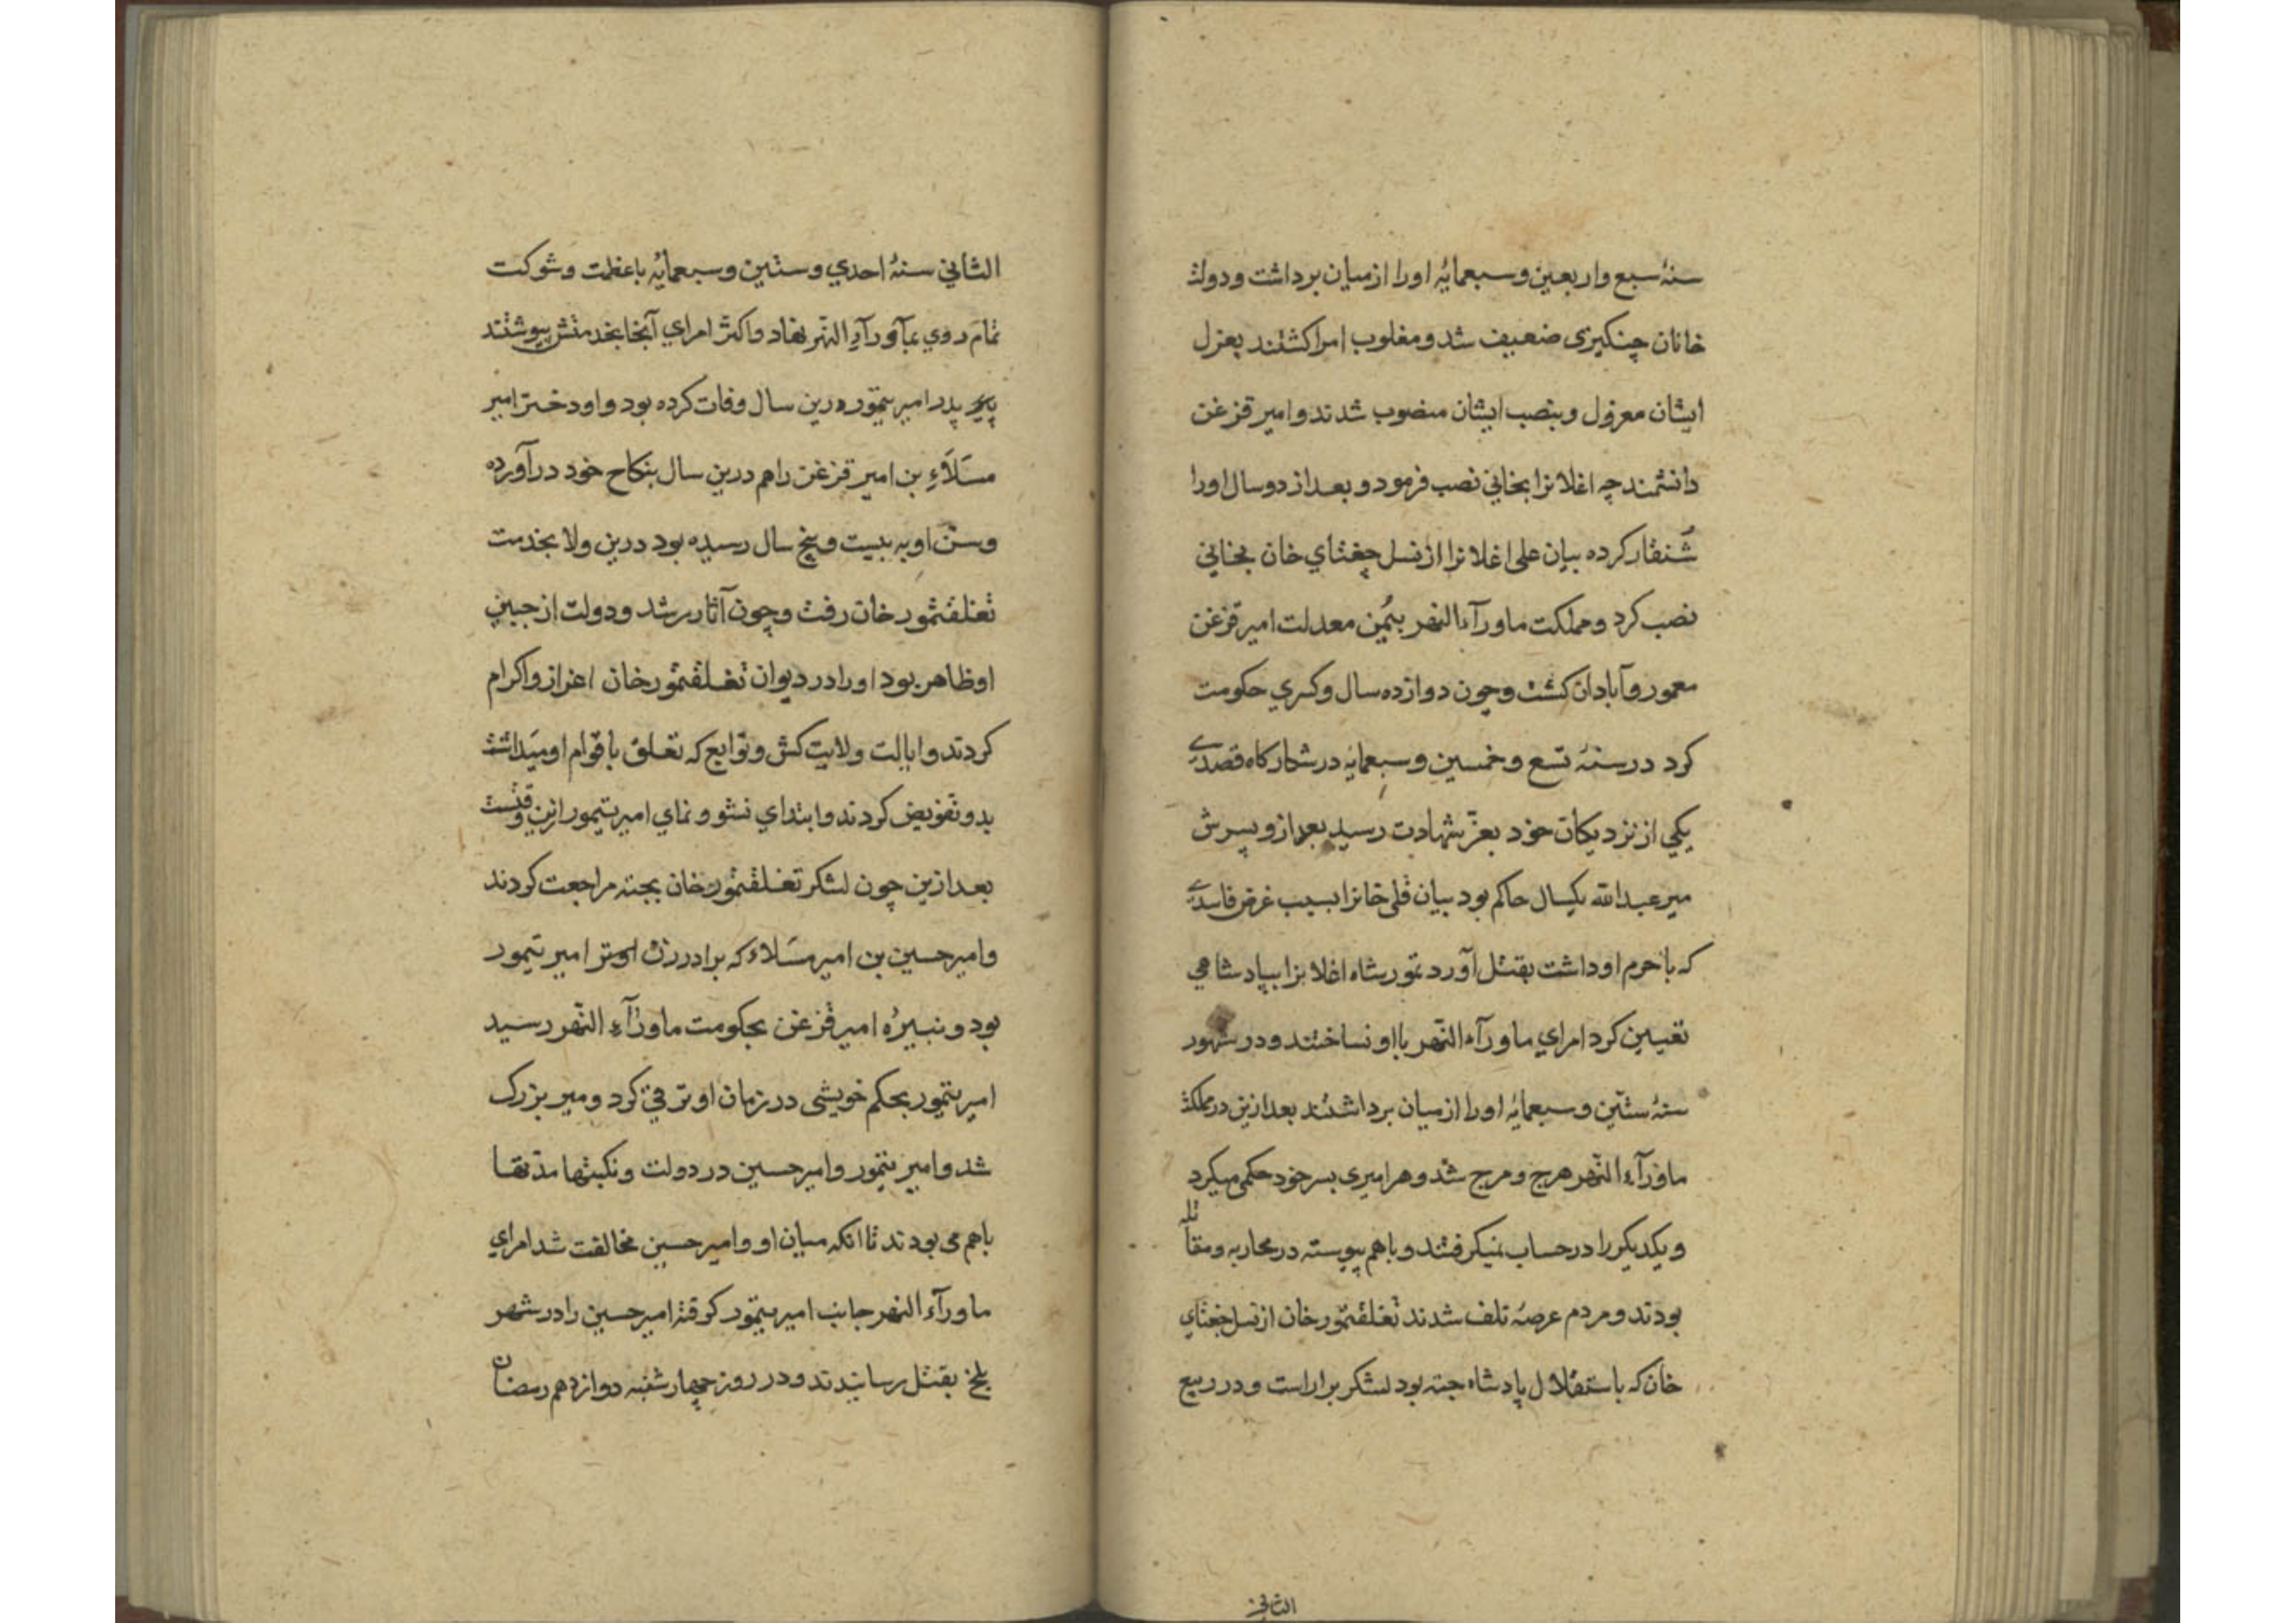 سنهٔ سبع واربعین و سبعمایهٔ اورا از میان برداشت و دولت
خانان چنکیزی ضعیف شد و مغلوب امرا کشتند بعزل
ایشان معزول و بنصب ایشان منصوب شدند و امیر قزغن
دانشمندچه اغلانرا بخانی نصب فرمود و بعد از دو سال اورا
شُنقار کرده بیان علی اغلانرا از نسل چغتای خان بخانی
نصب کرد و مملکت ماورآء النهر بیُمن معدلت امیر قزغن
معمور و آبادان کشت و چون دوازده سال و کسری حکومت
کرد در سنهٔ تسع و خمسین و سبعمایه در شکارکاه قصدے
یکی از نزدیکان خود بعزّ شهادت رسید بعد ازو پسرش
میر عبدالله یکسال حاکم بود بیان قلی خانرا بسبب غرض فاسدے
که با حرم او داشت بقتل آورد تمورشاه اغلانرا بپادشاهی
تعیین کرد امرای ماورآء النّهر بااو نساختند و در شهور
سنهٔ ستّین و سبعمایهٔ اورا از میان برداشتند بعد ازین در مملکت
ماورآء النّهر هرج و مرج شد و هر امیری بسر خود حکمی میکرد
و یکدیکر را در حساب نمیکرفتند و باهم پیوسته در محاربه و مقاتله
بودند و مردم عرصهٔ تلف شدند تغلقتمور خان از نسل جغتای
خان که باستقلال پادشاه جته بود لشکر براراست و در ربیع
الثانی
الثانی سنهٔ احدی و ستین و سبعمایهٔ باعظمت و شوکت
تمام روی بمآورآءِ النّهر نهاد و اکثر امرای آنجا بخدمتش پیوستند
پدر امیر تیمور درین سال وفات کرده بود و او دختر امیر
مسَلاءِ بن امیر قزغن را هم درین سال بنکاح خود درآورده
و سنّ او به بیست و پنج سال رسیده بود درین ولا بخدمت
تغلقتمور خان رفت و چون آثار رشد و دولت از جبین
او ظاهر بود اورا در دیوان تغلقتمور خان اعزاز واکرام
کردند و ایالت ولایت کش و توابع که تعلق باقوام او میداشت
بدو تفویض کردند و ابتدای نشو و نمای امیر تیمور ازین وقتست
بعد ازین چون لشکر تغلقتمور خان بجته مراجعت کردند
و امیر حسین بن امیر مسَلاء که برادر زن امیر تیمور
بود و نبیرهٔ امیر قزغن بحکومت ماورآءِ النّهر رسید
امیر تیمور بحکم خویشی در زمان او ترقی کرد و میر بزرک
شد و امیر تیمور و امیر حسین در دولت و نکبتها مدّتها
باهم می بودند تا انکه میان او و امیر حسین مخالفت شد امرای
ماورآء النهر جانب امیر تیمور کرفته امیر حسین را در شهر
بلخ بقتل رسانیدند و در روز چهار شنبه دوازدهم رمضان